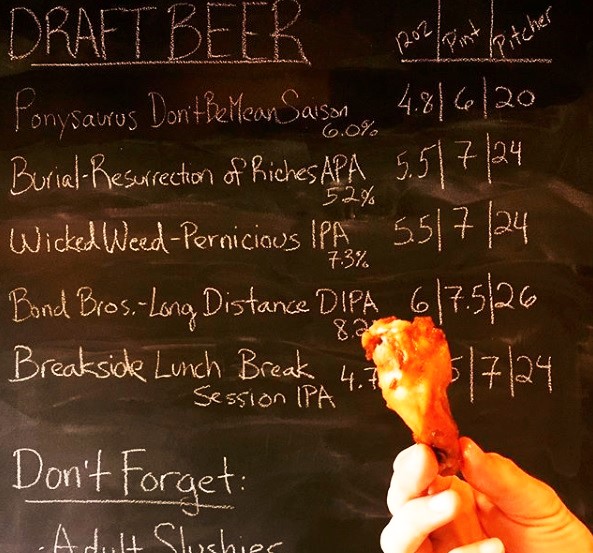 DRAFT BEER 12oz | Pint | Pitcher
Ponysaurus Don't Be Mean Saison 4.8 | 6 | 20
6.0%
Burial-Resurrection of Riches APA 5.5 | 7 | 24
5.2%
Wicked Weed-Pernicious IPA 5.5 | 7 | 24
7.3%
Bond Bros.-Long Distance DIPA 6 | 7.5 | 26
8.2
Breakside Lunch Break 4.7 5 | 7 | 24
Session IPA
Don't Forget:
·Adult Slushies